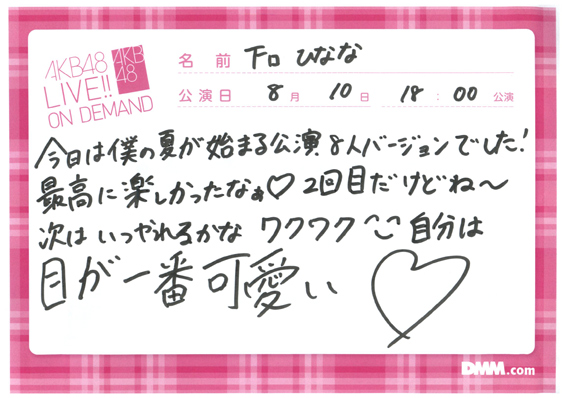 AKB48
LIVE!!
ON DEMAND
AKB
48
名前 下口ひなな
公演日 8月10日 18:00公演
今日は僕の夏が始まる公演8人バージョンでした!
最高に楽しかったなぁ♡2回目だけどね〜
次はいつやれるかな ワクワク 自分は
目が一番可愛い♡
DMM.com